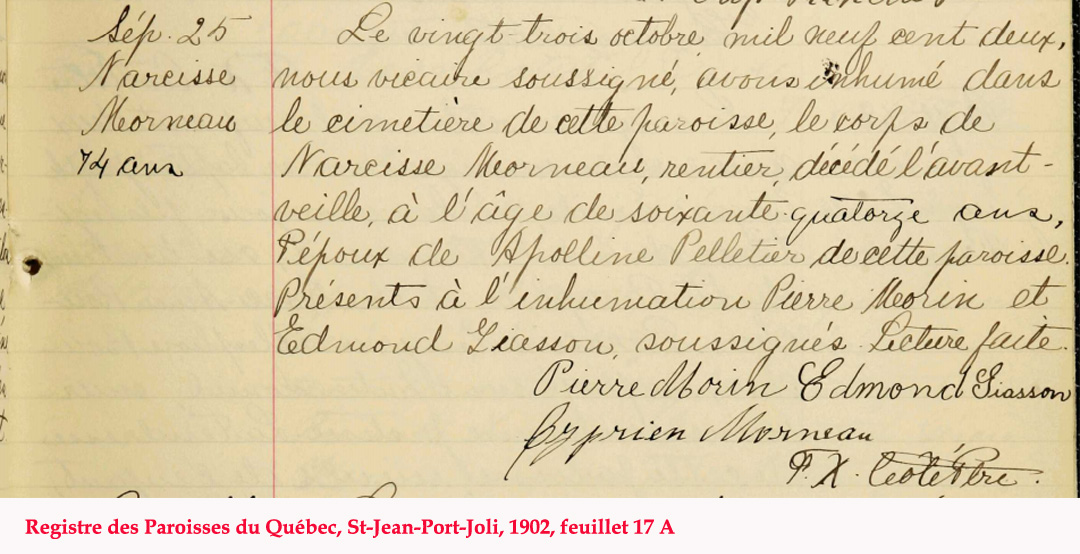 Sép. 25
Narcisse
Morneau
74 ans
Le vingt-trois octobre, mil neuf cent deux,
nous vicaire soussigné, avons inhumé dans
le cimetière de cette paroisse, le corps de
Narcisse Morneau, rentier, décédé l'avant-
veille, à l'âge de soixante-quatorze ans,
l'époux de Apolline Pelletier de cette paroisse.
Présents à l'inhumation Pierre Morin et
Edmond Giasson, soussignés. Lecture faite.
Pierre Morin Edmond Giasson
Cyprien Morneau
F. X. Ptre.
Registre des Paroisses du Québec, St-Jean-Port-Joli, 1902, feuillet 17 A